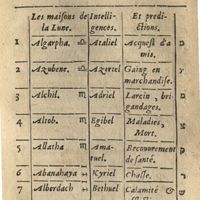 Les maisons de Intelli- Et predi-
la Lune. gences. ctions.
1 Algarpha. ♎ Ataliel Acquest d'a
mis.
2 Azubene. ♎ Azeriel Gaing en
marchandise.
3 Alchil. ♏ Adriel Larcin, bri-
gandages.
4 Altob. ♏ Egibel Maladies,
Mort.
5 Allatha ♏ Ama- Recouvrement
tuel. de santé.
6 Abanahaya ♐ Kyriel Chasse.
7 Alberdach ♐ Bethuel Calamité &